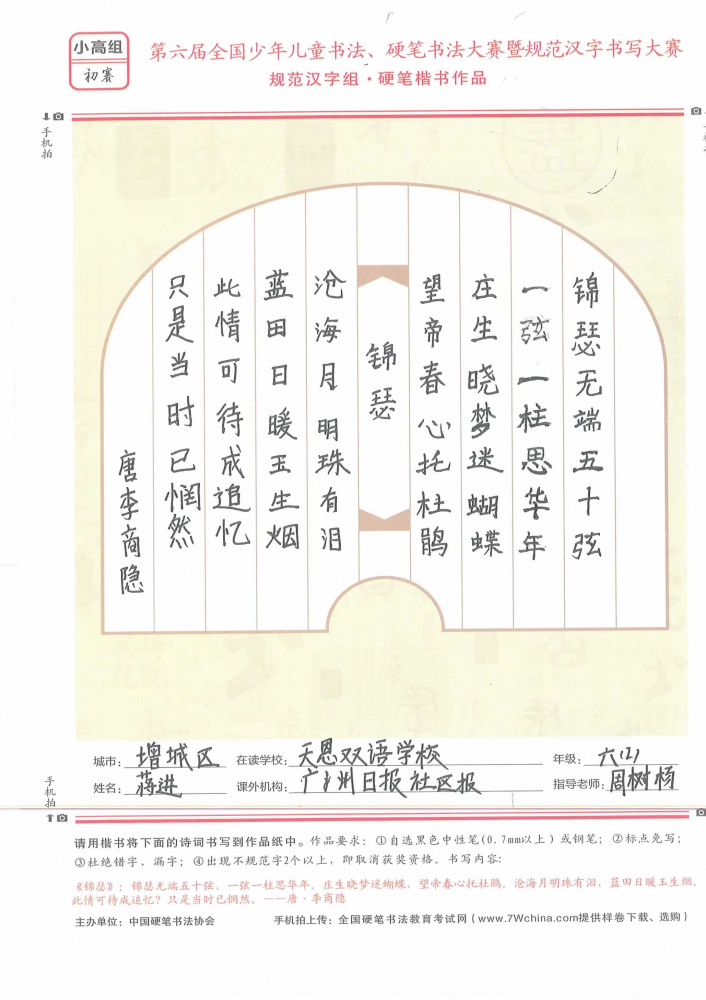 小高组
初赛
第六届全国少年儿童书法、硬笔书法大赛暨规范汉字书写大赛
规范汉字组·硬笔楷书作品
手机拍
锦瑟无端五十弦
一弦一柱思华年
庄生晓梦迷蝴蝶
望帝春心托杜鹃
锦瑟
沧海月明珠有泪
蓝田日暖玉生烟
此情可待成追忆
只是当时已惘然
唐李商隐
城市：增城区 在读学校：天恩双语学校 年级：六(2)
姓名：蒋进 课外机构：广州日报社区报 指导老师：周树杨
手机拍
请用楷书将下面的诗词书写到作品纸中。作品要求：①自选黑色中性笔(0.7mm以上)或钢笔；②标点免写；
③杜绝错字、漏字；④出现不规范字2个以上，即取消获奖资格。书写内容：
《锦瑟》：锦瑟无端五十弦，一弦一柱思华年。庄生晓梦迷蝴蝶，望帝春心托杜鹃。沧海月明珠有泪，蓝田日暖玉生烟。
此情可待成追忆？只是当时已惘然。——唐·李商隐
主办单位：中国硬笔书法协会 手机拍上传：全国硬笔书法教育考试网（www.7Wchina.com提供样卷下载、选购）